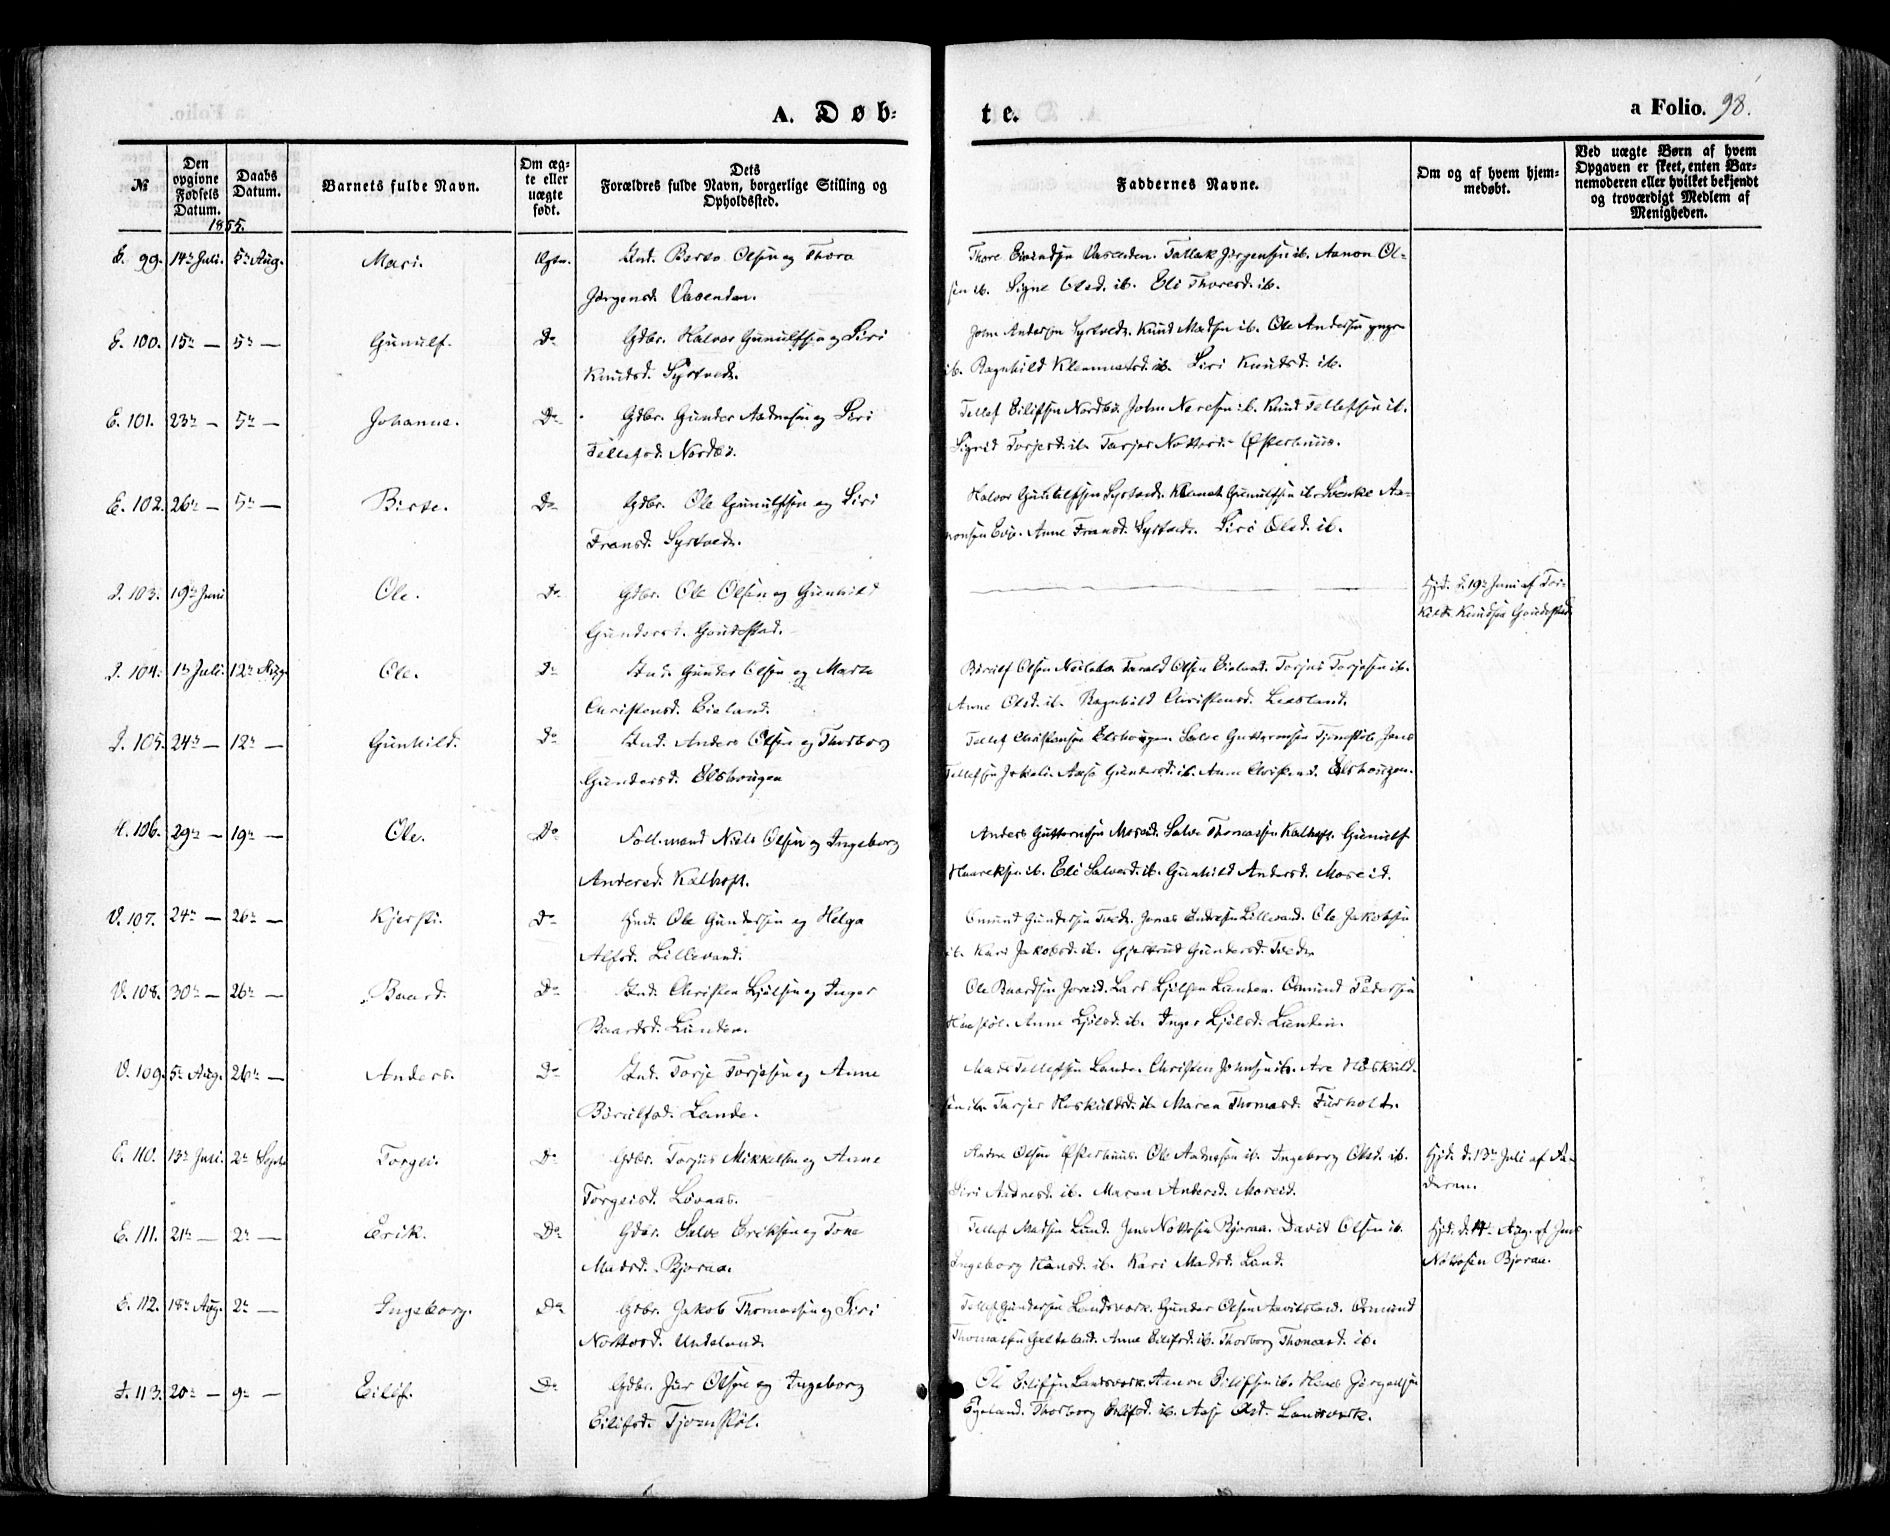 A. Døb-
te.
a Folio. 98.
№
Den opgivne Fødsels Datum.
Daabs Datum.
Barnets fulde Navn.
Om ægte eller uægte født.
Dets Forældres fulde Navn, borgerlige Stilling og Opholdssted.
Faddernes Navne.
Om og af hvem hjemmedøbt.
Ved uægte Børn af hvem Opgaven er skeet, enten Barnemoderen eller hvilket bekjendt og troværdigt Medlem af Menigheden.
1855.
E. 99. 14de Juli. 5te Aug. Mari. Ind. Olsen og Thora
Jørgensd. Vasenden.
Thore Vasenden. Tallak Jørgensen ib. Aanon Ol-
sen ib. Signe Olsd. ib. Eli Thoresd. ib.
E. 100. 15de — 5te — Gunulf. Do Gdbr. Halvor Gunulfsen og Siri
Knudsd. Syrtvedt.
John Andersen Syrtvedt. Knud Madsen ib. Ole Andersen yngre
ib. Ragnhild Klemmetsd. ib. Siri Knudsd. ib.
E. 101. 23de — 5te — Johanne. Do Gdbr. Gunder Aadnesen og Siri
Tellefsd. Nordbø.
Tellef Eilifsen Nordbø. John ib. Knud Tellefsen ib.
Sigrid Torjesd. ib. Østerhuus.
E. 102. 26de — 5te — Birte. Do Gdbr. Ole Gunulfsen og Siri
Fransd. Syrtvedt.
Halvor Gunulfsen Syrtvedt. Gunulfsen ib. Aa-
nonsen Evje. Anne Fransd. Syrtvedt. Siri Olsd. ib.
I. 103. 19de Juni Ole. Do Gdbr. Ole Olsen og Gunhild
Gundersd.
Hjd. d. 19de Juni af Tor-
Knudsen
I. 104. 1ste Juli. 12te Aug. Ole. Do Ind. Gunder Olsen og Marte
Christensd. Eieland.
Olsen Tarald Olsen Eieland. Torjus Torjesen ib.
Anne Olsd. ib. Ragnhild Christensd.
I. 105. 24de — 12te — Gunhild. Do Ind. Anders Olsen og Thorborg
Gundersd. Elshougen
Tellef Christensen Elshougen. Salve Guttormsen Jens
Tellefsen Aase Gundersd. ib. Anne Christensd. Elshougen.
H. 106. 29de — 19de — Ole. Do Niels Olsen og Ingeborg
Andersd. Kalhoft.
Anders Guttormsen Moseid. Salve Thomassen Kalhoft. Gunulf
ib. Eli Salvesd. ib. Gunhild Andersd. Moseid.
V. 107. 24de — 26de — Kjersti. Do Ind. Ole Gundersen og Helga
Lillevand.
Omund Gundersen Tvedt. Jonas Lillevand. Ole Jakobsen
ib. Kari Jakobsd. ib. Gjertrud Gundersd. Tvedt.
V. 108. 30te — 26de — Baard. Do Ind. Christen Ljølsen og Inger
Baardsd. Lunden.
Ole Baardsen Joreid. Lars Ljølsen Lunden. Omund Pedersen
Anne Ljølsd. ib. Inger Ljølsd. Lunden.
V. 109. 5te Aug. 26de — Anders. Do Ind. Torje Torjesen og Anne
Børulfsd. Lande.
Mads Tellefsen Lande. Christen Johnsen ib. Are Høskuld-
sen ib. Maren Thomasd. Furholt.
E. 110. 13de Juli. 2de Septb. Torgei. Do Gdbr. Torjus Mikkelsen og Anne
Torgeisd. Løvaas.
Olsen Østerhuus. Ole Aadnesen ib. Ingeborg Olsd. ib.
Siri Aadnesd. ib. Maren Andersd. Moseid.
Hjd. d. 13de Juli af Fa-
deren.
E. 111. 21de — 2de — Erik. Do Gdbr. Salve Eriksen og Tone
Madsd. Bjoraa.
Tellef Madsen Lund. Jens Nottosen Bjoraa. David Olsen ib.
Ingeborg Hansd. ib. Kari Madsd. Lund.
Hjd. d. Aug. af Jens
Nottosen Bjoraa.
E. 112. 18de Aug. 2de — Ingeborg. Do Gdbr. Jakob Thomassen og Siri
Nottosd. Undeland.
Tellef Gundersen Landsverk. Gunder Olsen Aavitsland. Osmund
Thomassen Galteland. Anne Eilifsd. ib. Thorborg Thomasd. ib.
I. 113. 20de — 9de — Eilef. Do Gdbr. Olsen og Ingeborg
Eilifsd. Tjomstøl.
Ole Eilifsen Landsverk. Aanon Eilifsen ib. Hans Jørgensen
Egeland. Thorborg Eilifsd. ib. Aase Olsd. Landsverk.